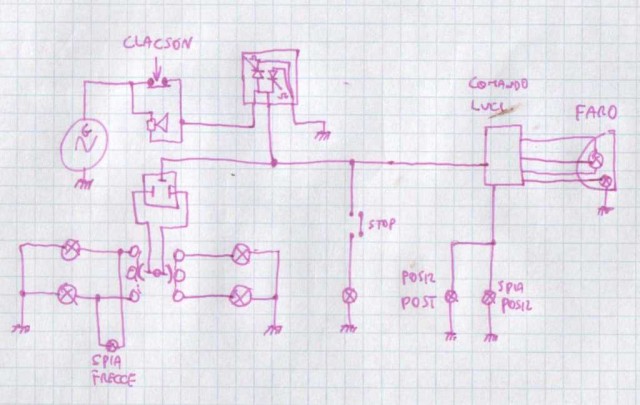 CLACSON
COMANDO
LUCI
FARO
G
STOP
POSIZ
POST
SPIA
POSIZ
SPIA
FRECCE